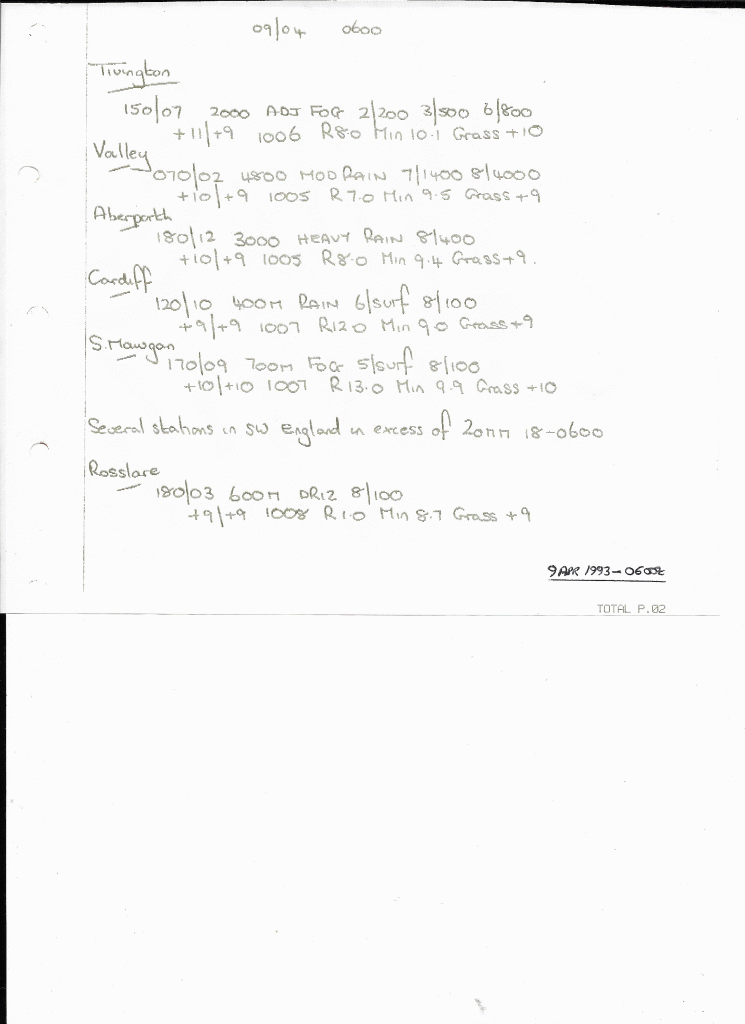 09/04 0600
Tivington
150/07 2000 ADJ FOG 2/200 3/500 6/800
+11/+9 1006 R8.0 Min 10.1 Grass +10
Valley
070/02 4800 MOD RAIN 7/1400 8/4000
+10/+9 1005 R7.0 Min 9.5 Grass +9
Aberporth
180/12 3000 HEAVY RAIN 8/400
+10/+9 1005 R8.0 Min 9.4 Grass +9.
Cardiff
120/10 400M RAIN 6/surf 8/100
+9/+9 1007 R12.0 Min 9.0 Grass +9
S. Mawgan
170/09 700M FOG 5/surf 8/100
+10/+10 1007 R13.0 Min 9.9 Grass +10
Several stations in SW England in excess of 20mm 18-0600
Rosslare
180/03 600M DRIZ 8/100
+9/+9 1008 R1.0 Min 8.7 Grass +9
9 APR 1993 - 0600Z
TOTAL P.02